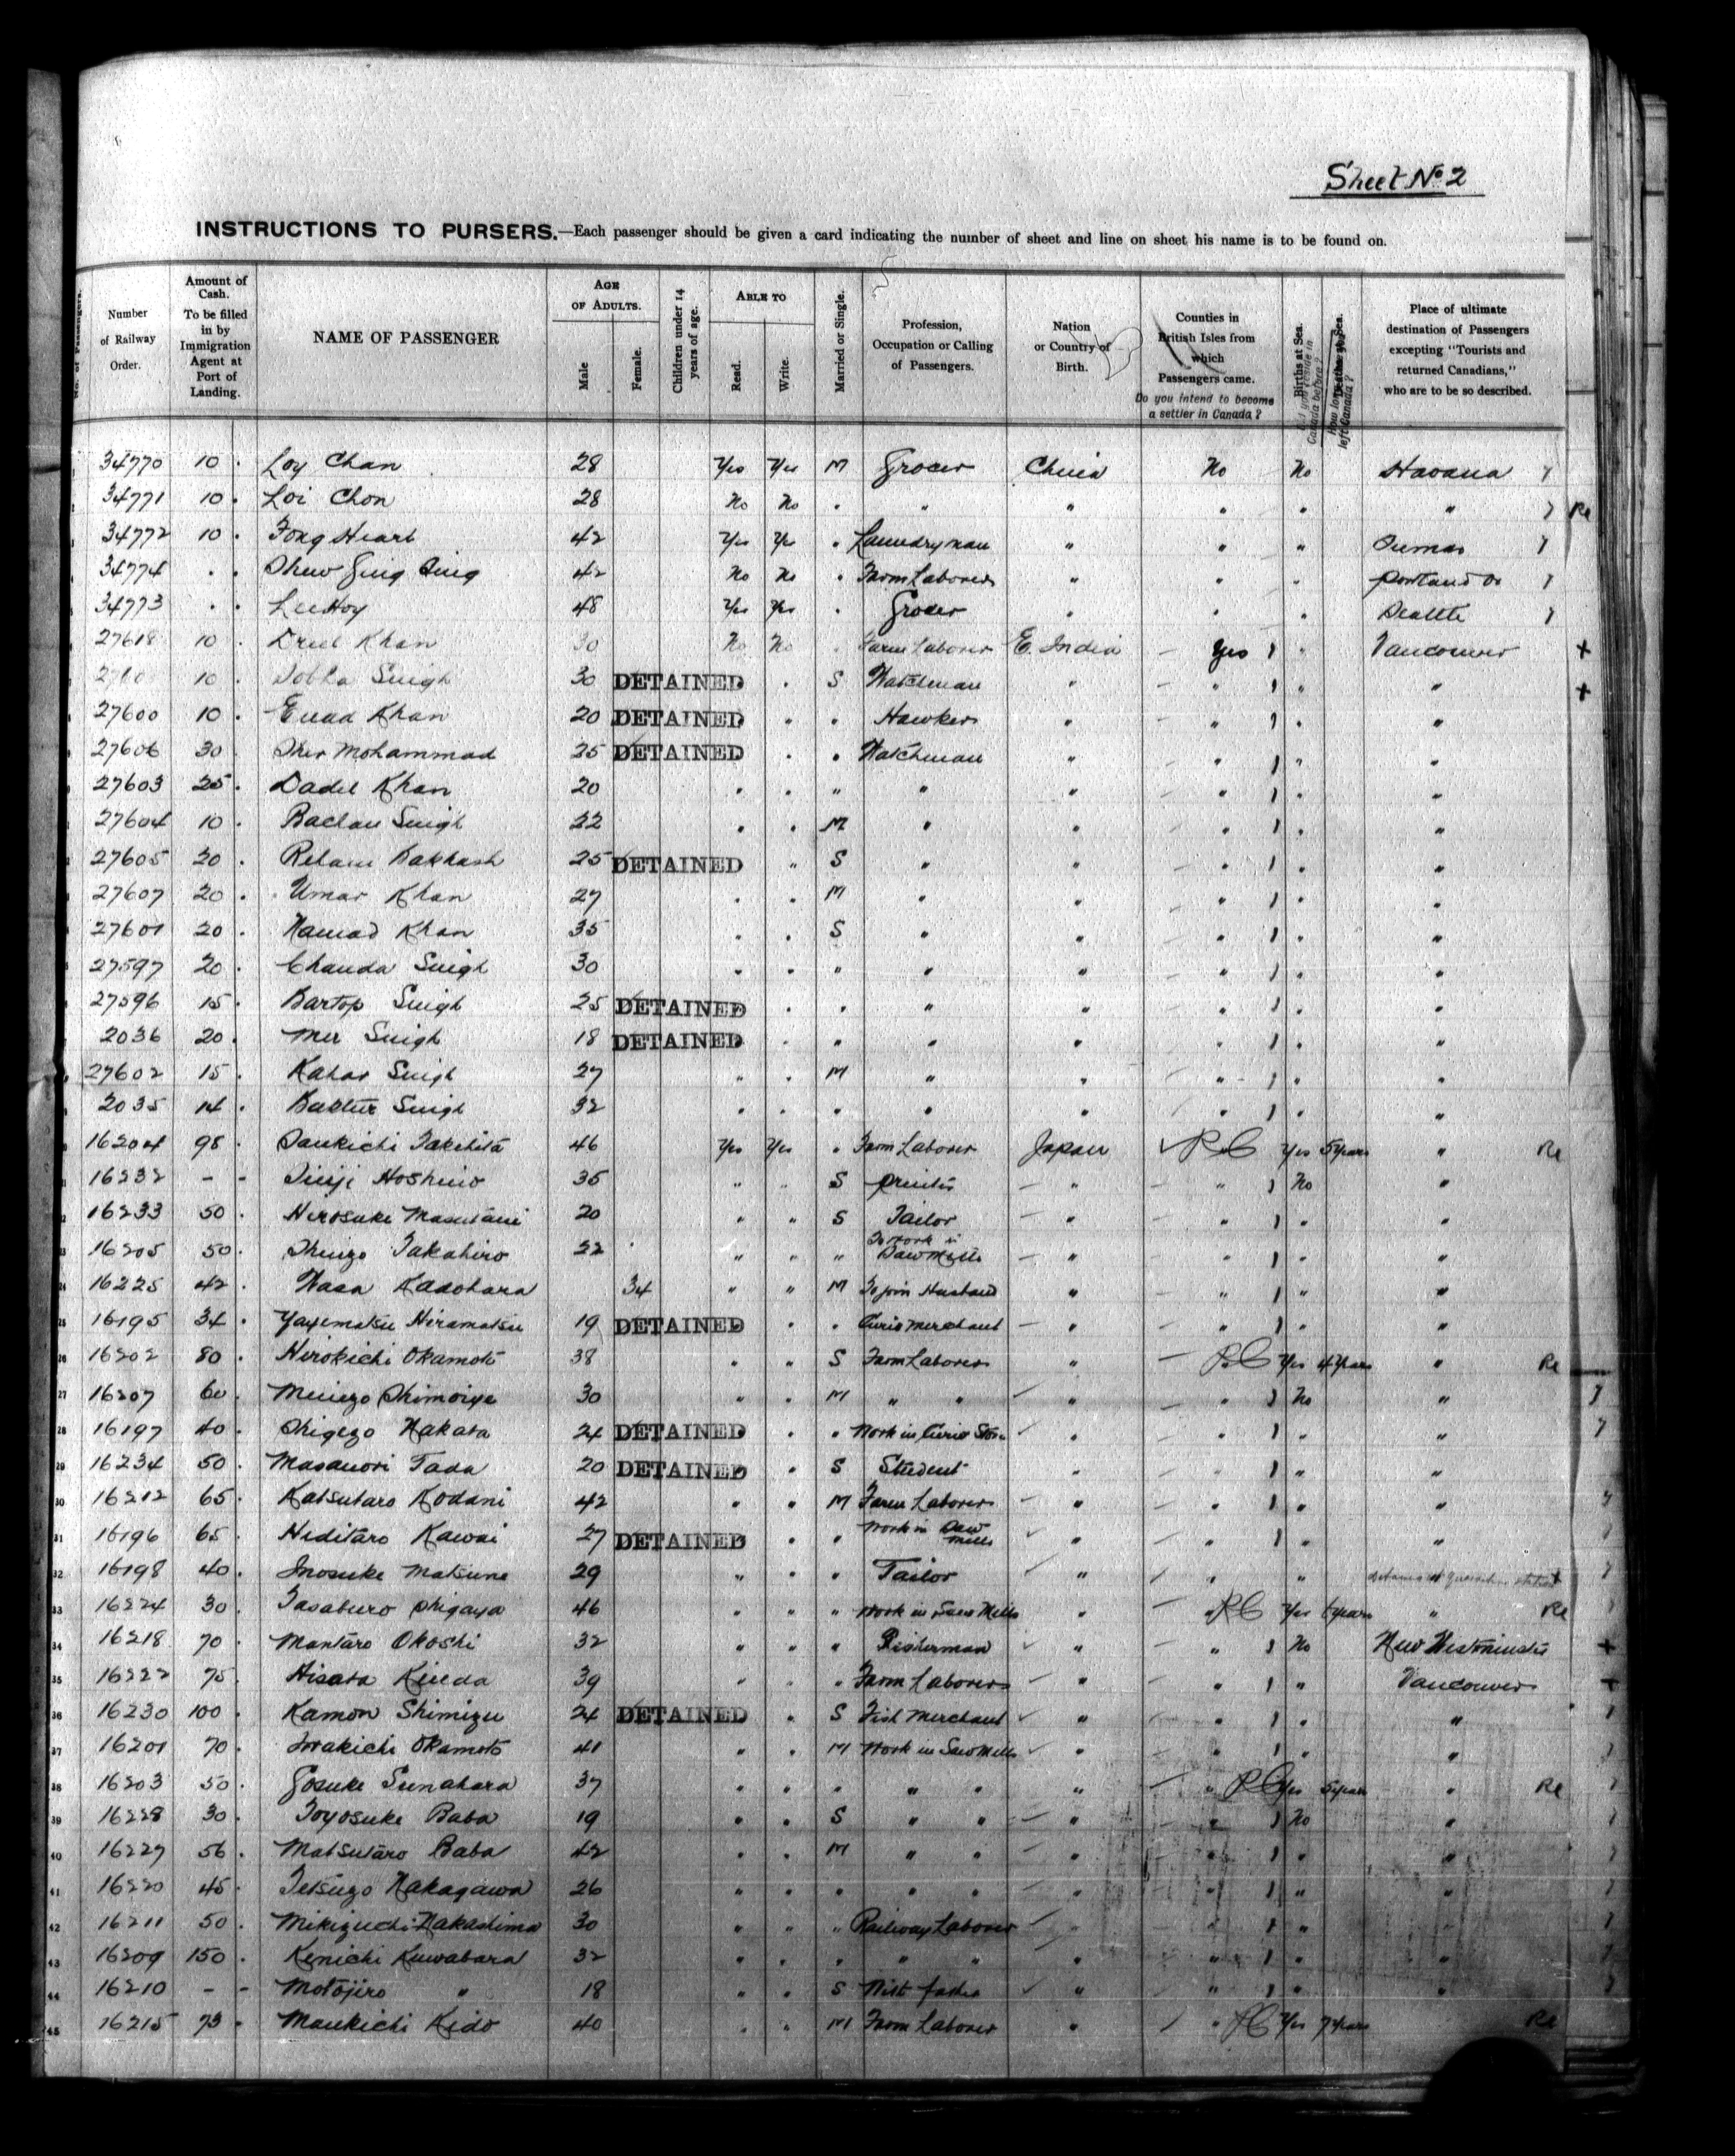 Sheet No 2
INSTRUCTIONS TO PURSERS.—Each passenger should be given a card indicating the number of sheet and line on sheet his name is to be found on.
No. of Passengers. Number of Railway Order. Amount of Cash. To be filled in by Immigration Agent at Port of Landing. NAME OF PASSENGER AGE OF ADULTS. Male Female. Children under 14 years of age. ABLE TO Read. Write. Married or Single. Profession, Occupation or Calling of Passengers. Nation or Country of Birth. Counties in British Isles from which Passengers came. Do you intend to become a settler in Canada? Births at Sea. Deaths at Sea. Place of ultimate destination of Passengers excepting "Tourists and returned Canadians," who are to be so described.
34770 10 . Loy Chan 28 Yes Yes M Grocer China No No Havana
34771 10 . Loi Chon 28 No No " " " " " " Re
34772 10 . Fong Hearl 42 Yes Yes " Laundryman " " "
34774 . . Shew Ging Sing 42 No No " Farm Laborer " " " Portland Or
34773 . . Lee Hoy 48 Yes Yes " Grocer " " " Seattle
27618 10 . Khan 30 No No " Farm Laborer E. India Yes " Vancouver +
10 . Singh 30 DETAINED " S Watchman " " " " +
27600 10 . Khan 20 DETAINED " " Hawker " " " "
27606 30 . Sher Mohammad 25 DETAINED " " Watchman " " " "
27603 25 . Dadil Khan 20 " " " " " " " "
27604 10 . Bachan Singh 22 " " M " " " " "
27605 20 . Bakhash 25 DETAINED " S " " " " "
27607 20 . Umar Khan 27 " " M " " " " "
27601 20 . Hamad Khan 35 " " S " " " " "
27597 20 . Chanda Singh 30 " " " " " " " "
27596 15 . Bartop Singh 25 DETAINED " " " " " " "
2036 20 . Mer Singh 18 DETAINED " " " " " " "
27602 15 . Kahar Singh 27 " " M " " " " "
2035 14 . Singh 32 " " " " " " " "
16204 98 . Sankichi Takehita 46 Yes Yes " Farm Laborer Japan R.C Yes 5 Years " Re
16232 - - Hoshino 35 " " S Printer " " No "
16233 50 . Hirosuke Masutani 20 " " S Tailor " " " "
16205 50 . Shuizo Takahiro 22 " " " To Work in Saw Mills " " " "
16225 42 . Wasa Kadohara 34 " " M To join Husband " " " "
16195 34 . Yayematsu Hiramatsu 19 DETAINED " " Curio Merchant " " " "
16202 80 . Hirokichi Okamoto 38 " " S Farm Laborer " R.C Yes 4 Years " Re
16207 60 . Shimoiye 30 " " M " " " " No "
16197 40 . Shigezo Nakata 24 DETAINED " " Work in Curio Store " " " "
16234 50 . Masanori Tada 20 DETAINED " S Student " " " "
16212 65 . Katsutaro Kodani 42 " " M Farm Laborer " " " "
16196 65 . Hiditaro Kawai 27 DETAINED " " Work in Saw Mills " " " "
16198 40 . Inosuke Matsune 29 " " " Tailor " " "
16224 30 . Tasaburo Shigaya 46 " " " Work in Saw Mills " " R.C Yes years " Re
16218 70 . Mantaro Okoshi 32 " " " Fisherman " " No New Westminster +
16222 75 . Hisata Kieda 39 " " " Farm Laborer " " " Vancouver +
16230 100 . Kamon Shimizu 24 DETAINED " S Fish Merchant " " " "
16201 70 . Iwakichi Okamoto 41 " " M Work in Saw Mills " " " "
16203 50 . Gosuke Sunahara 37 " " " " " " " R.C Yes 5 years " Re
16228 30 . Toyosuke Baba 19 " " S " " " " No "
16227 56 . Matsutaro Baba 42 " " M " " " " " "
16220 45 . Tetsuzo Nakagawa 26 " " " " " " " " "
16211 50 . Mikizuchi Nakashima 30 " " " Railway Laborer " " " "
16209 150 . Kenichi Kuwabara 32 " " " " " " " " "
16210 - - Motojiro " 18 " " S With father " " " "
16215 73 . Mankichi Kido 40 " " M Farm Laborer " " R.C Yes 7 Years Re